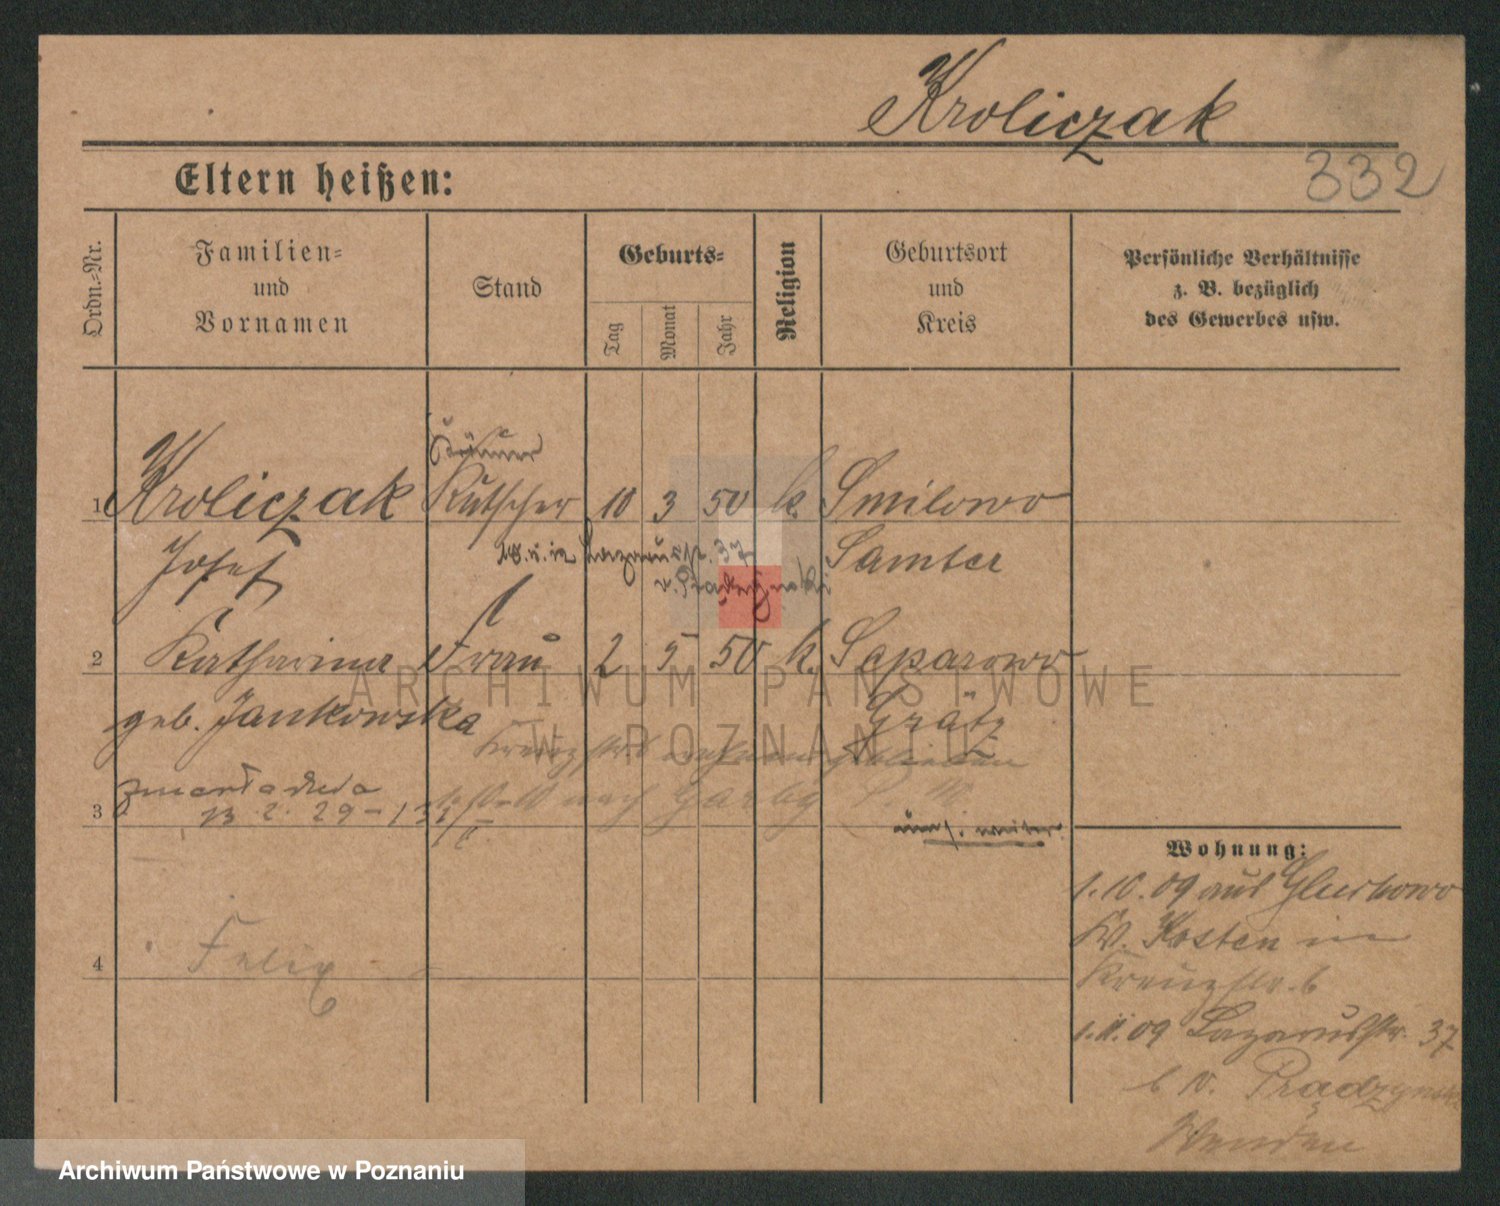 Kroliczak
332
Eltern heißen:
Ordn.-Nr.
Familien=
und
Vornamen
Stand
Geburts=
Tag
Monat
Jahr
Religion
Geburtsort
und
Kreis
Persönliche Verhältnisse
z. B. bezüglich
des Gewerbes usw.
1 Kroliczak Kutscher 10 3 50 k. Smilowo
Josef Lazarusstr. 37 Samter
2 Katharina Frau 2 5 50 k. Separowo
geb. Jankowska Grätz
3 zmarła dnia
13 2. 29
nach
4 Felix
Wohnung:
1.10.09 aus Gluchowo
Kr. Kosten in
Kreuzstr. 6
1.11.09 Lazarusstr. 37
b v. Prądzynski
ARCHIWUM PAŃSTWOWE
W POZNANIU
Archiwum Państwowe w Poznaniu